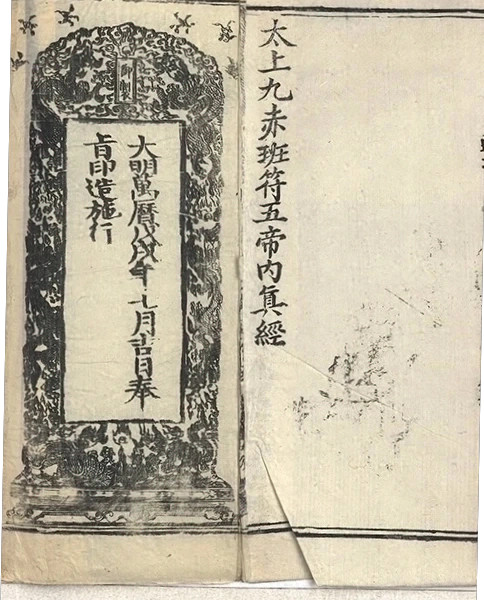 太上九赤班符五帝内真經
御製
大明萬曆戊戌年七月吉日奉
旨印造施行